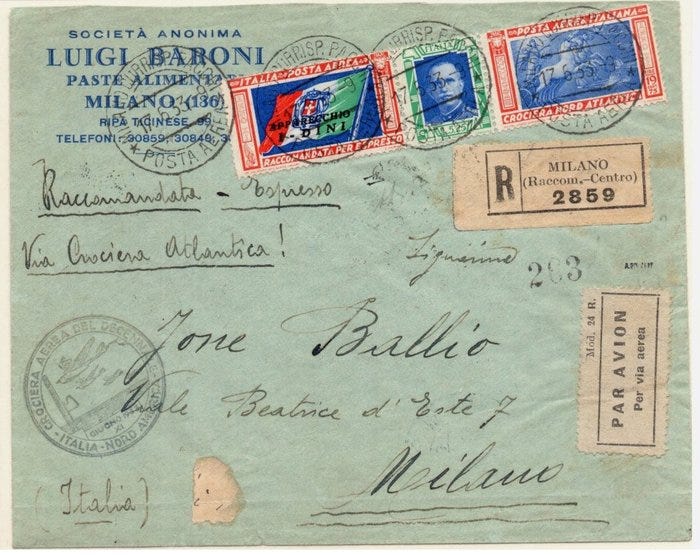 SOCIETÀ ANONIMA
LUIGI BARONI
PASTE ALIMENTA
MILANO (136)
RIPA TICINESE, 99
TELEFONI: 30859, 30849, 3
ITALIA POSTA AEREA
APPARECCHIO
I-DINI
RACCOMANDATA PER ESPRESSO
POSTA AEREA ITALIANA
CROCIERA NORD ATLANTICA
17.6.33
POSTA AEREA
R
MILANO
(Raccom.-Centro)
2859
Raccomandata - Espresso
Via Crociera Atlantica!
Signorina
263
Jone Ballio
Viale Beatrice d'Este 7
Milano
(Italia)
Mod. 24 R.
PAR AVION
Per via aerea
CROCIERA AEREA DEL DECENNALE
ITALIA - NORD AMERICA